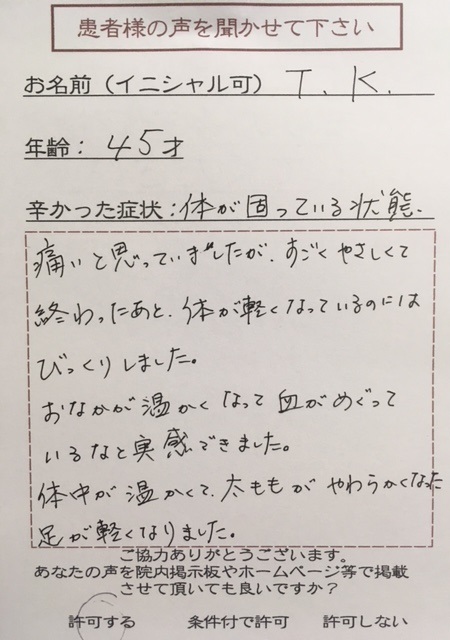 患者様の声を聞かせて下さい
お名前（イニシャル可） T. K.
年齢： 45才
辛かった症状：体が固っている状態.
痛いと思っていましたが、すごくやさしくて
終わったあと、体が軽くなっているのには
びっくりしました。
おなかが温かくなって血がめぐって
いるなと実感できました。
体中が温かくて、太ももがやわらかくなった
足が軽くなりました。
ご協力ありがとうございます。
あなたの声を院内掲示板やホームページ等で掲載
させて頂いても良いですか？
許可する 条件付で許可 許可しない